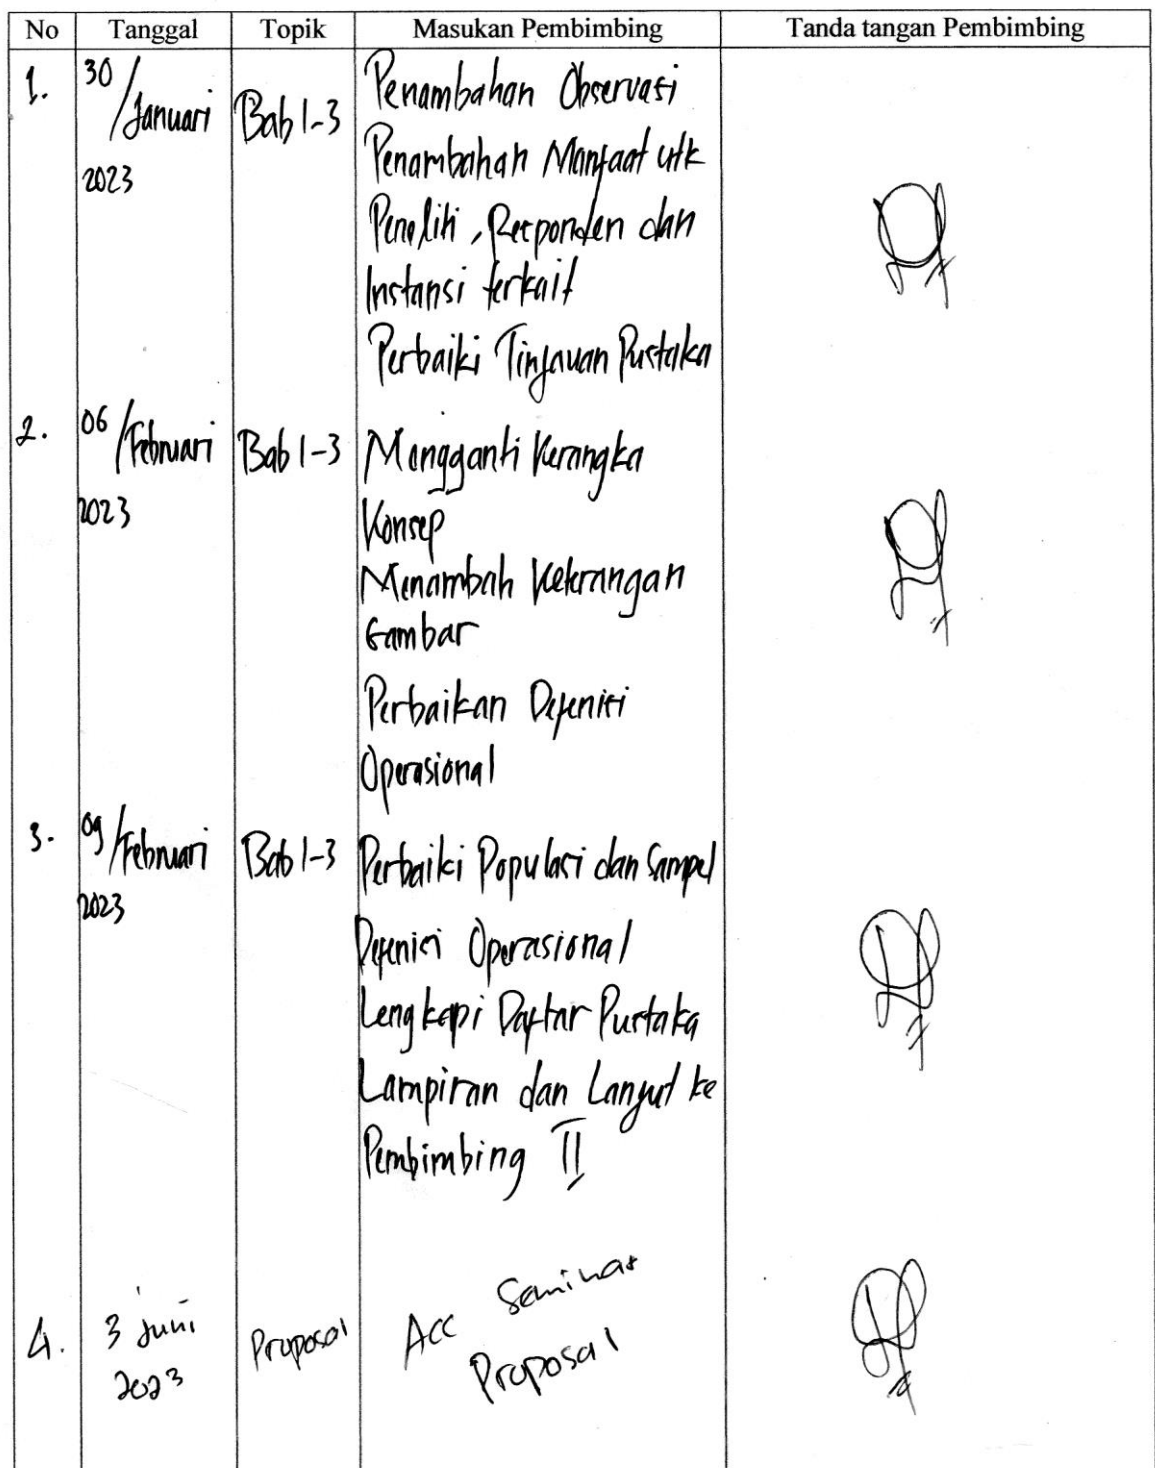 No Tanggal Topik Masukan Pembimbing Tanda tangan Pembimbing
1. 30 /Januari 2023 Bab 1-3 Penambahan Observasi
Penambahan Manfaat utk
Peneliti, Responden dan
Instansi terkait
Perbaiki Tinjauan Pustaka
2. 06 /Februari 2023 Bab 1-3 Mengganti Kerangka
Konsep
Menambah Keterangan
Gambar
Perbaikan Defenisi
Operasional
3. 09 /Februari 2023 Bab 1-3 Perbaiki Populasi dan Sampel
Defenisi Operasional
Lengkapi Daftar Pustaka
Lampiran dan Lanjut ke
Pembimbing II
4. 3 Juni 2023 Proposal Acc Seminar
Proposal